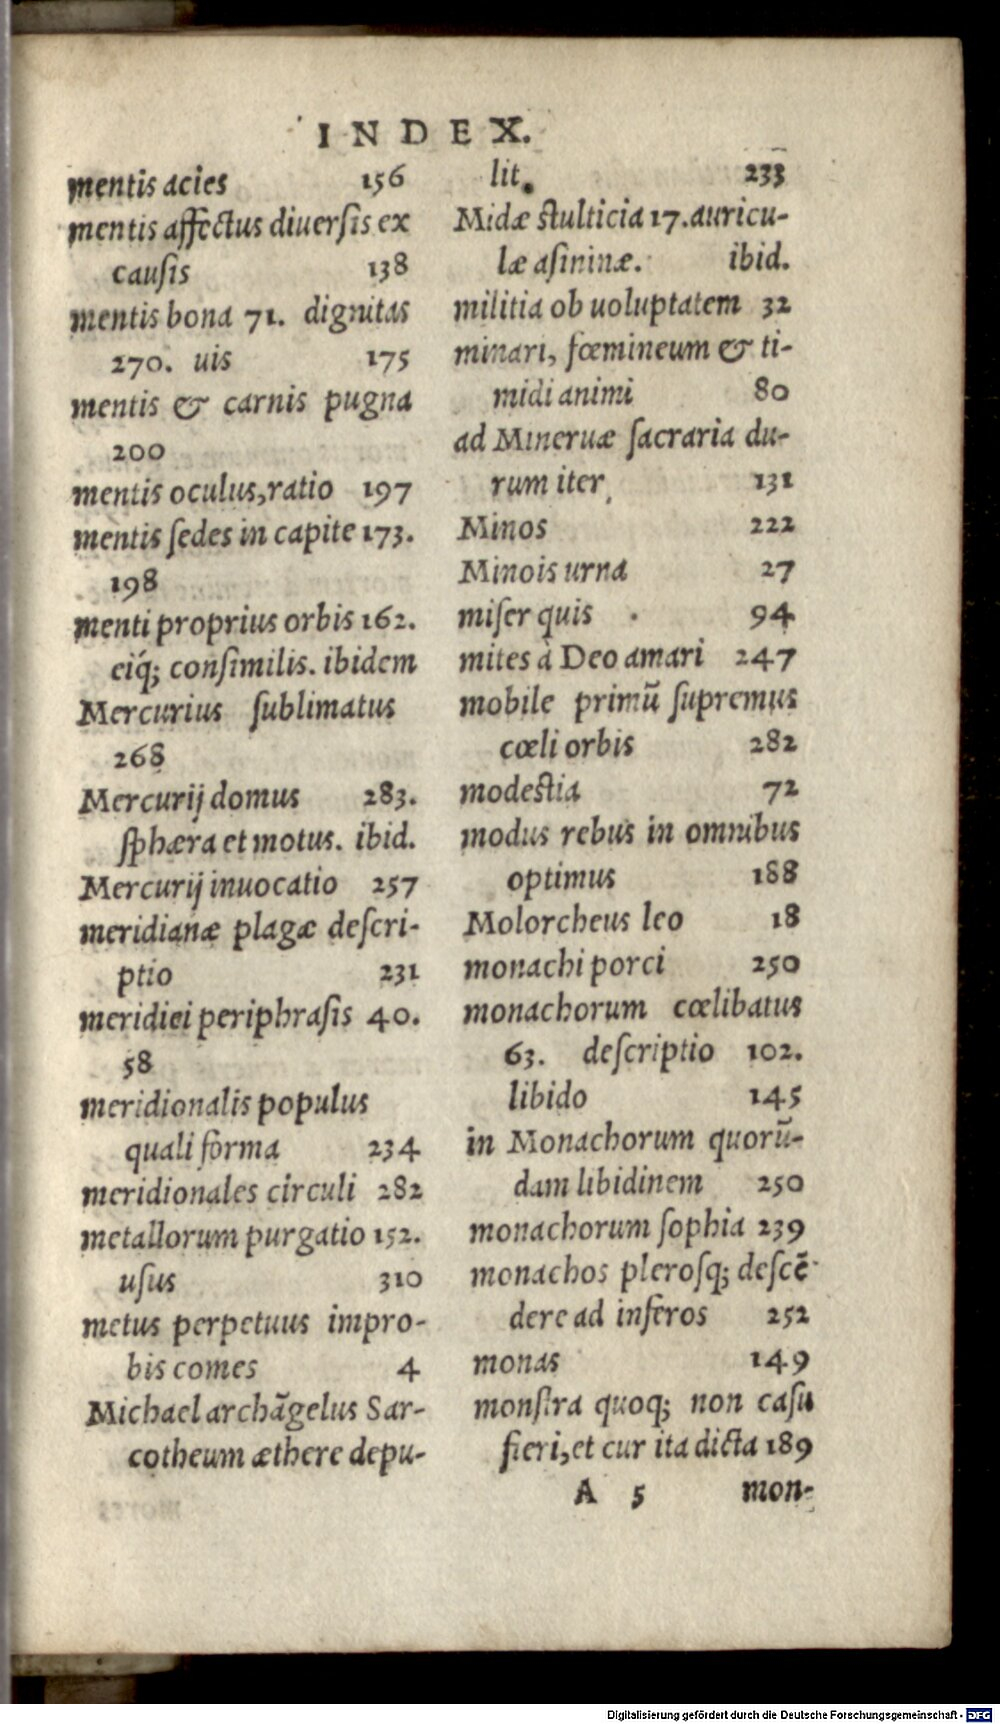 INDEX.
mentis acies 156
mentis affectus diuerſis ex
cauſis 138
mentis bona 71. dignitas
270. uis 175
mentis & carnis pugna
200
mentis oculus, ratio 197
mentis ſedes in capite 173.
198
menti proprius orbis 162.
eiq́; conſimilis. ibidem
Mercurius ſublimatus
268
Mercurij domus 283.
ſphæra et motus. ibid.
Mercurij inuocatio 257
meridianæ plagæ deſcri-
ptio 231
meridiei periphraſis 40.
58
meridionalis populus
quali forma 234
meridionales circuli 282
metallorum purgatio 152.
uſus 310
metus perpetuus impro-
bis comes 4
Michael archãgelus Sar-
cotheum æthere depu-
lit. 233
Midæ ſtulticia 17. auricu-
læ aſininæ. ibid.
militia ob uoluptatem 32
minari, fœmineum & ti-
midi animi 80
ad Mineruæ ſacraria du-
rum iter 131
Minos 222
Minois urna 27
miſer quis 94
mites à Deo amari 247
mobile primũ ſupremus
cœli orbis 282
modeſtia 72
modus rebus in omnibus
optimus 188
Molorcheus leo 18
monachi porci 250
monachorum cœlibatus
63. deſcriptio 102.
libido 145
in Monachorum quorũ-
dam libidinem 250
monachorum ſophia 239
monachos pleroſq; deſcẽ-
dere ad inferos 252
monas 149
monſtra quoq; non caſu
fieri, et cur ita dicta 189
A 5 mon-
Digitalisierung gefördert durch die Deutsche Forschungsgemeinschaft - DFG